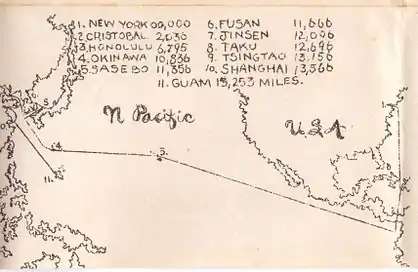 1. NEW YORK 00,000 6. FUSAN 11,666
2. CRISTOBAL 2,036 7. JINSEN 12,096
3. HONOLULU 6,795 8. TAKU 12,696
4. OKINAWA 10,836 9. TSINGTAO 13,156
5. SASEBO 11,356 10. SHANGHAI 13,566
11. GUAM 15,253 MILES.
N Pacific
U.S.A
14
3.
11.